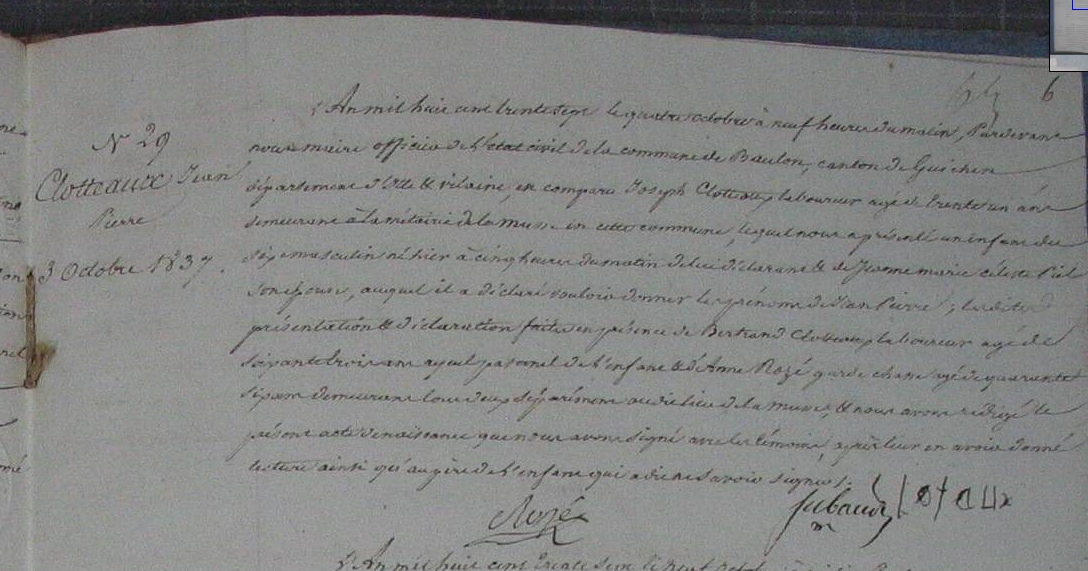 6
N° 29
Clotteaux Jean
Pierre
3 Octobre 1837.
L'An mil huit cent trente sept le quatre octobre à neuf heures du matin, Pardevant
nous maire officier de l'état civil de la commune de Baulon, canton de Guichen
département d'Ille & vilaine, est comparu Joseph Clotteaux laboureur agé de trente un ans
demeurant à la métairie de la Musse en cette commune, lequel nous a présenté un enfant du
sexe masculin né hier à cinq heures du matin de lui déclarant & de Jeanne marie céleste Piel
son épouse, auquel il a déclaré vouloir donner les prénoms de Jean Pierre ; les dites
présentation & déclaration faites en présence de Bertrand Clotteaux laboureur agé de
soixante trois ans ayeul paternel de l'enfant & d'Anne Rozé garde chasse agé de quarante
six ans demeurant tous deux séparément au dit lieu de la musse, & nous avons rédigé le
présent acte de naissance que nous avons signé avec les témoins, après leur en avoir donné
lecture ainsi qu'au père de l'enfant qui a dit ne savoir signer /.
Rozé
Jubault
m
L'An mil huit cent trente sept le